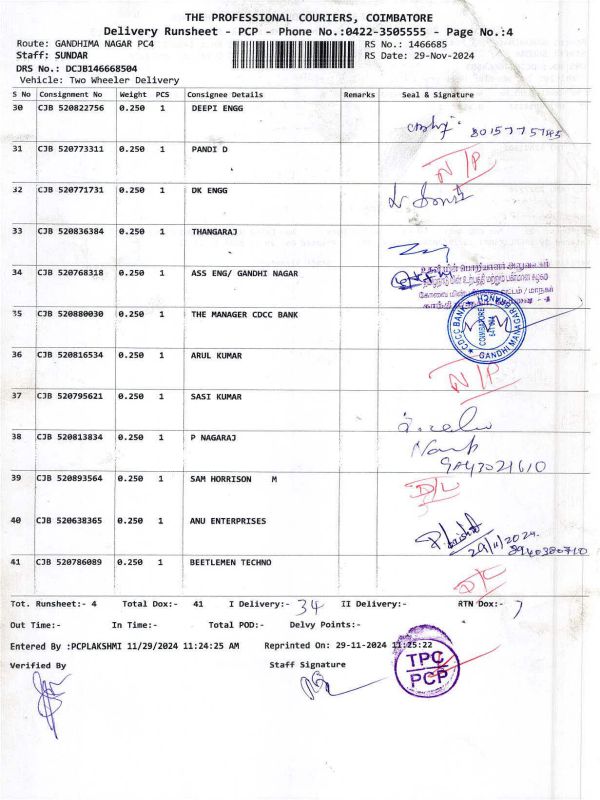 THE PROFESSIONAL COURIERS, COIMBATORE
Delivery Runsheet - PCP - Phone No.:0422-3505555 - Page No.:4
Route: GANDHIMA NAGAR PC4 RS No.: 1466685
Staff: SUNDAR RS Date: 29-Nov-2024
DRS No.: DCJB146668504
Vehicle: Two Wheeler Delivery
S No Consignment No Weight PCS Consignee Details Remarks Seal & Signature
30 CJB 520822756 0.250 1 DEEPI ENGG
8015775745
31 CJB 520773311 0.250 1 PANDI D N/P
32 CJB 520771731 0.250 1 DK ENGG
33 CJB 520836384 0.250 1 THANGARAJ
34 CJB 520768318 0.250 1 ASS ENG/ GANDHI NAGAR
உதவி மின் பொறியாளர் அலுவலகம்
35 CJB 520880030 0.250 1 THE MANAGER CDCC BANK
CDCC BANK GANDHI MANAGAR BRANCH COIMBATORE
36 CJB 520816534 0.250 1 ARUL KUMAR N/P
37 CJB 520795621 0.250 1 SASI KUMAR
38 CJB 520813834 0.250 1 P NAGARAJ
9843021610
39 CJB 520893564 0.250 1 SAM HORRISON M D/L
40 CJB 520638365 0.250 1 ANU ENTERPRISES
29/11/2024.
8940380710
41 CJB 520786089 0.250 1 BEETLEMEN TECHNO D/L
Tot. Runsheet:- 4 Total Dox:- 41 I Delivery:- 34 II Delivery:- RTN Dox:- 7
Out Time:- In Time:- Total POD:- Delvy Points:-
Entered By :PCPLAKSHMI 11/29/2024 11:24:25 AM Reprinted On: 29-11-2024 11:25:22
Verified By Staff Signature
TPC
PCP